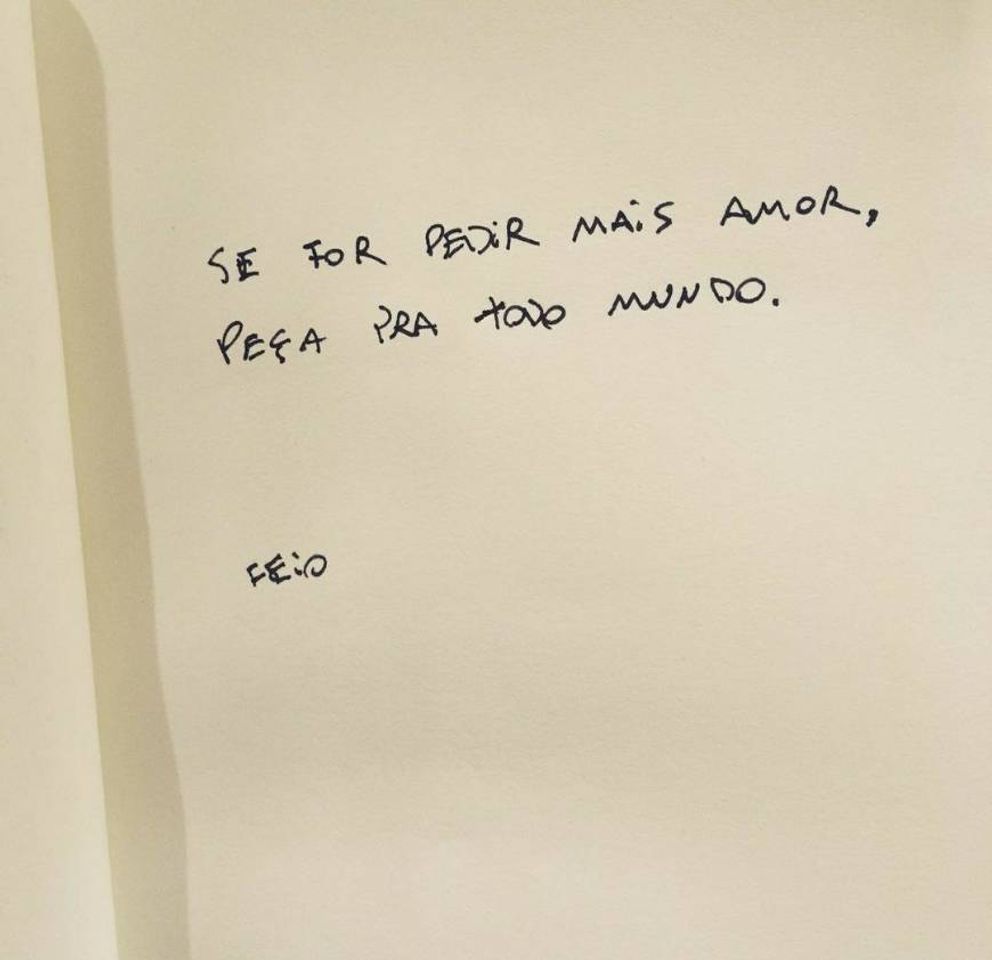 SE FOR PEDIR MAIS AMOR,
PEÇA PRA TODO MUNDO.
FEIO